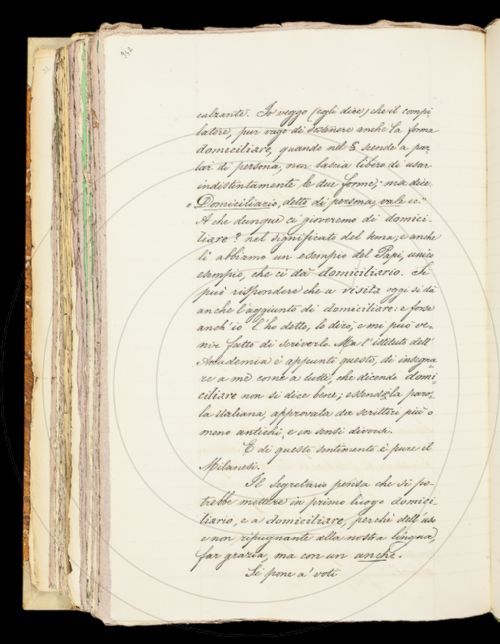 942
calzante. Io veggo (egli dice) che il compi
latore, pur vago di ostenere anche la forma
domiciliare, quando nel § scende a par
lar di persona, non lascia libero di usar
indistintamente le due forme; ma dice
"Domiciliario, detto di persona, vale ec."
A che dunque ci gioveremo di domici-
liare? nel significato del tema; e anche
lì abbiamo un esempio del Papi, unico
esempio, che ci dà domiciliario. Si
può rispondere che a visita oggi si dà
anche l'aggiunto di domiciliare: e forse
anch'io l'ho detto, lo dico, e mi può ve-
nir fatto di scriverlo. Ma l'istituto dell'
Accademia è appunto questo, di insegna
re a me come a tutti, che dicendo domi
ciliare non si dice bene; essendo la paro-
la italiana, approvata da scrittori più o
meno antichi, e in sensi diversi.
E di questo sentimento è pure il
Milanesi.
Il Segretario pensa che si po-
trebbe mettere in primo luogo domici
liario, e a domiciliare, perchè dell'uso
e non ripugnante alla nostra lingua,
far grazia, ma con un anche.
Si pone a' voti